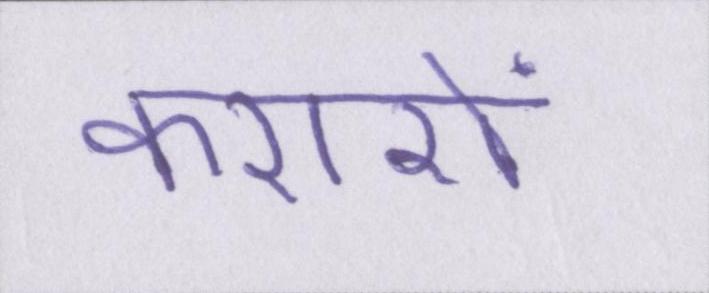 करारों